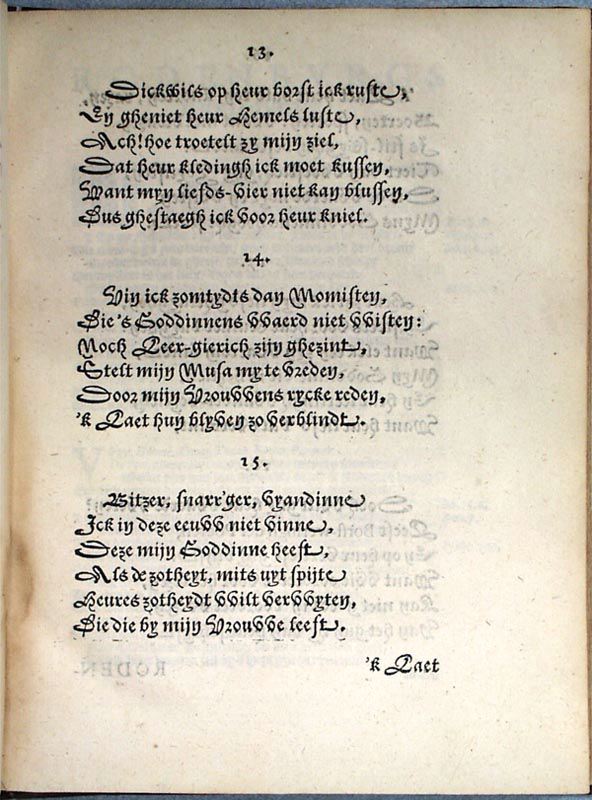 13.
Dickwils op heur borst ick ruste,
En gheniet heur Hemels luste,
Ach! hoe troetelt zy mijn ziel,
Dat heur kledingh ick moet kussen,
Want myn liefds-vier niet kan blussen,
Dus ghestaegh ick voor heur kniel.
14.
Vin ick zomtydts dan Momisten,
Die 's Goddinnens VVaerd niet VVisten:
Noch Leer-gierich zijn ghezint,
Stelt mijn Musa my te vreden,
Door mijn VrouVVens rycke reden,
'k Laet hun blyven zo verblindt.
15.
Bitzer, snarr'ger, vyandinne
Ick in deze eeuVV niet vinne,
Deze mijn Goddinne heeft,
Als de zotheyt, mits uyt spijte
Heures zotheydt VVilt verVVyten,
Die die by mijn VrouVVe leeft.
'k Laet